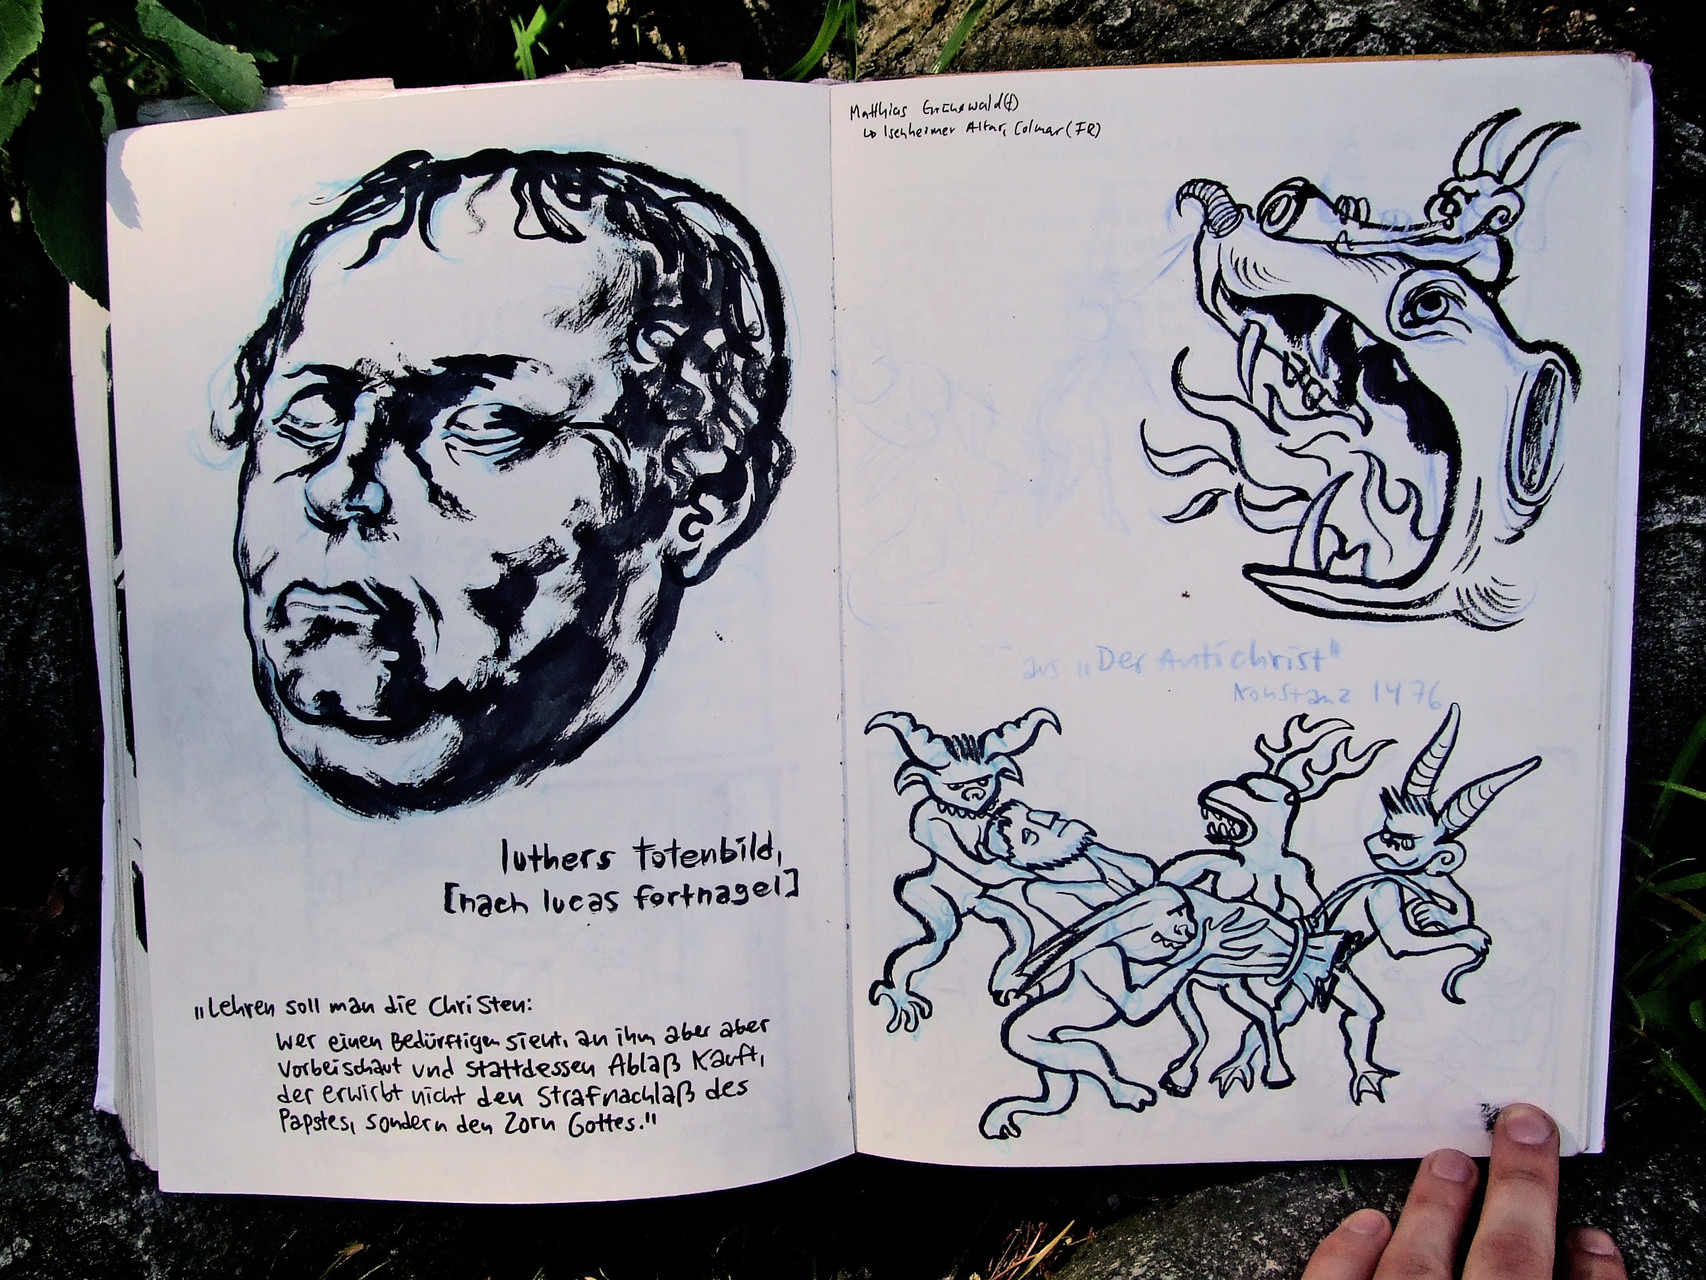 luthers totenbild,
[nach lucas fortnagel]
„Lehren soll man die Christen:
Wer einen Bedürftigen sieht, an ihm aber aber
vorbeischaut und stattdessen Ablaß kauft,
der erwirbt nicht den Strafnachlaß des
Papstes, sondern den Zorn Gottes."
Matthias Grünewald(†)
↳ Isenheimer Altar, Colmar (FR)
aus „Der Antichrist"
Konstanz 1476